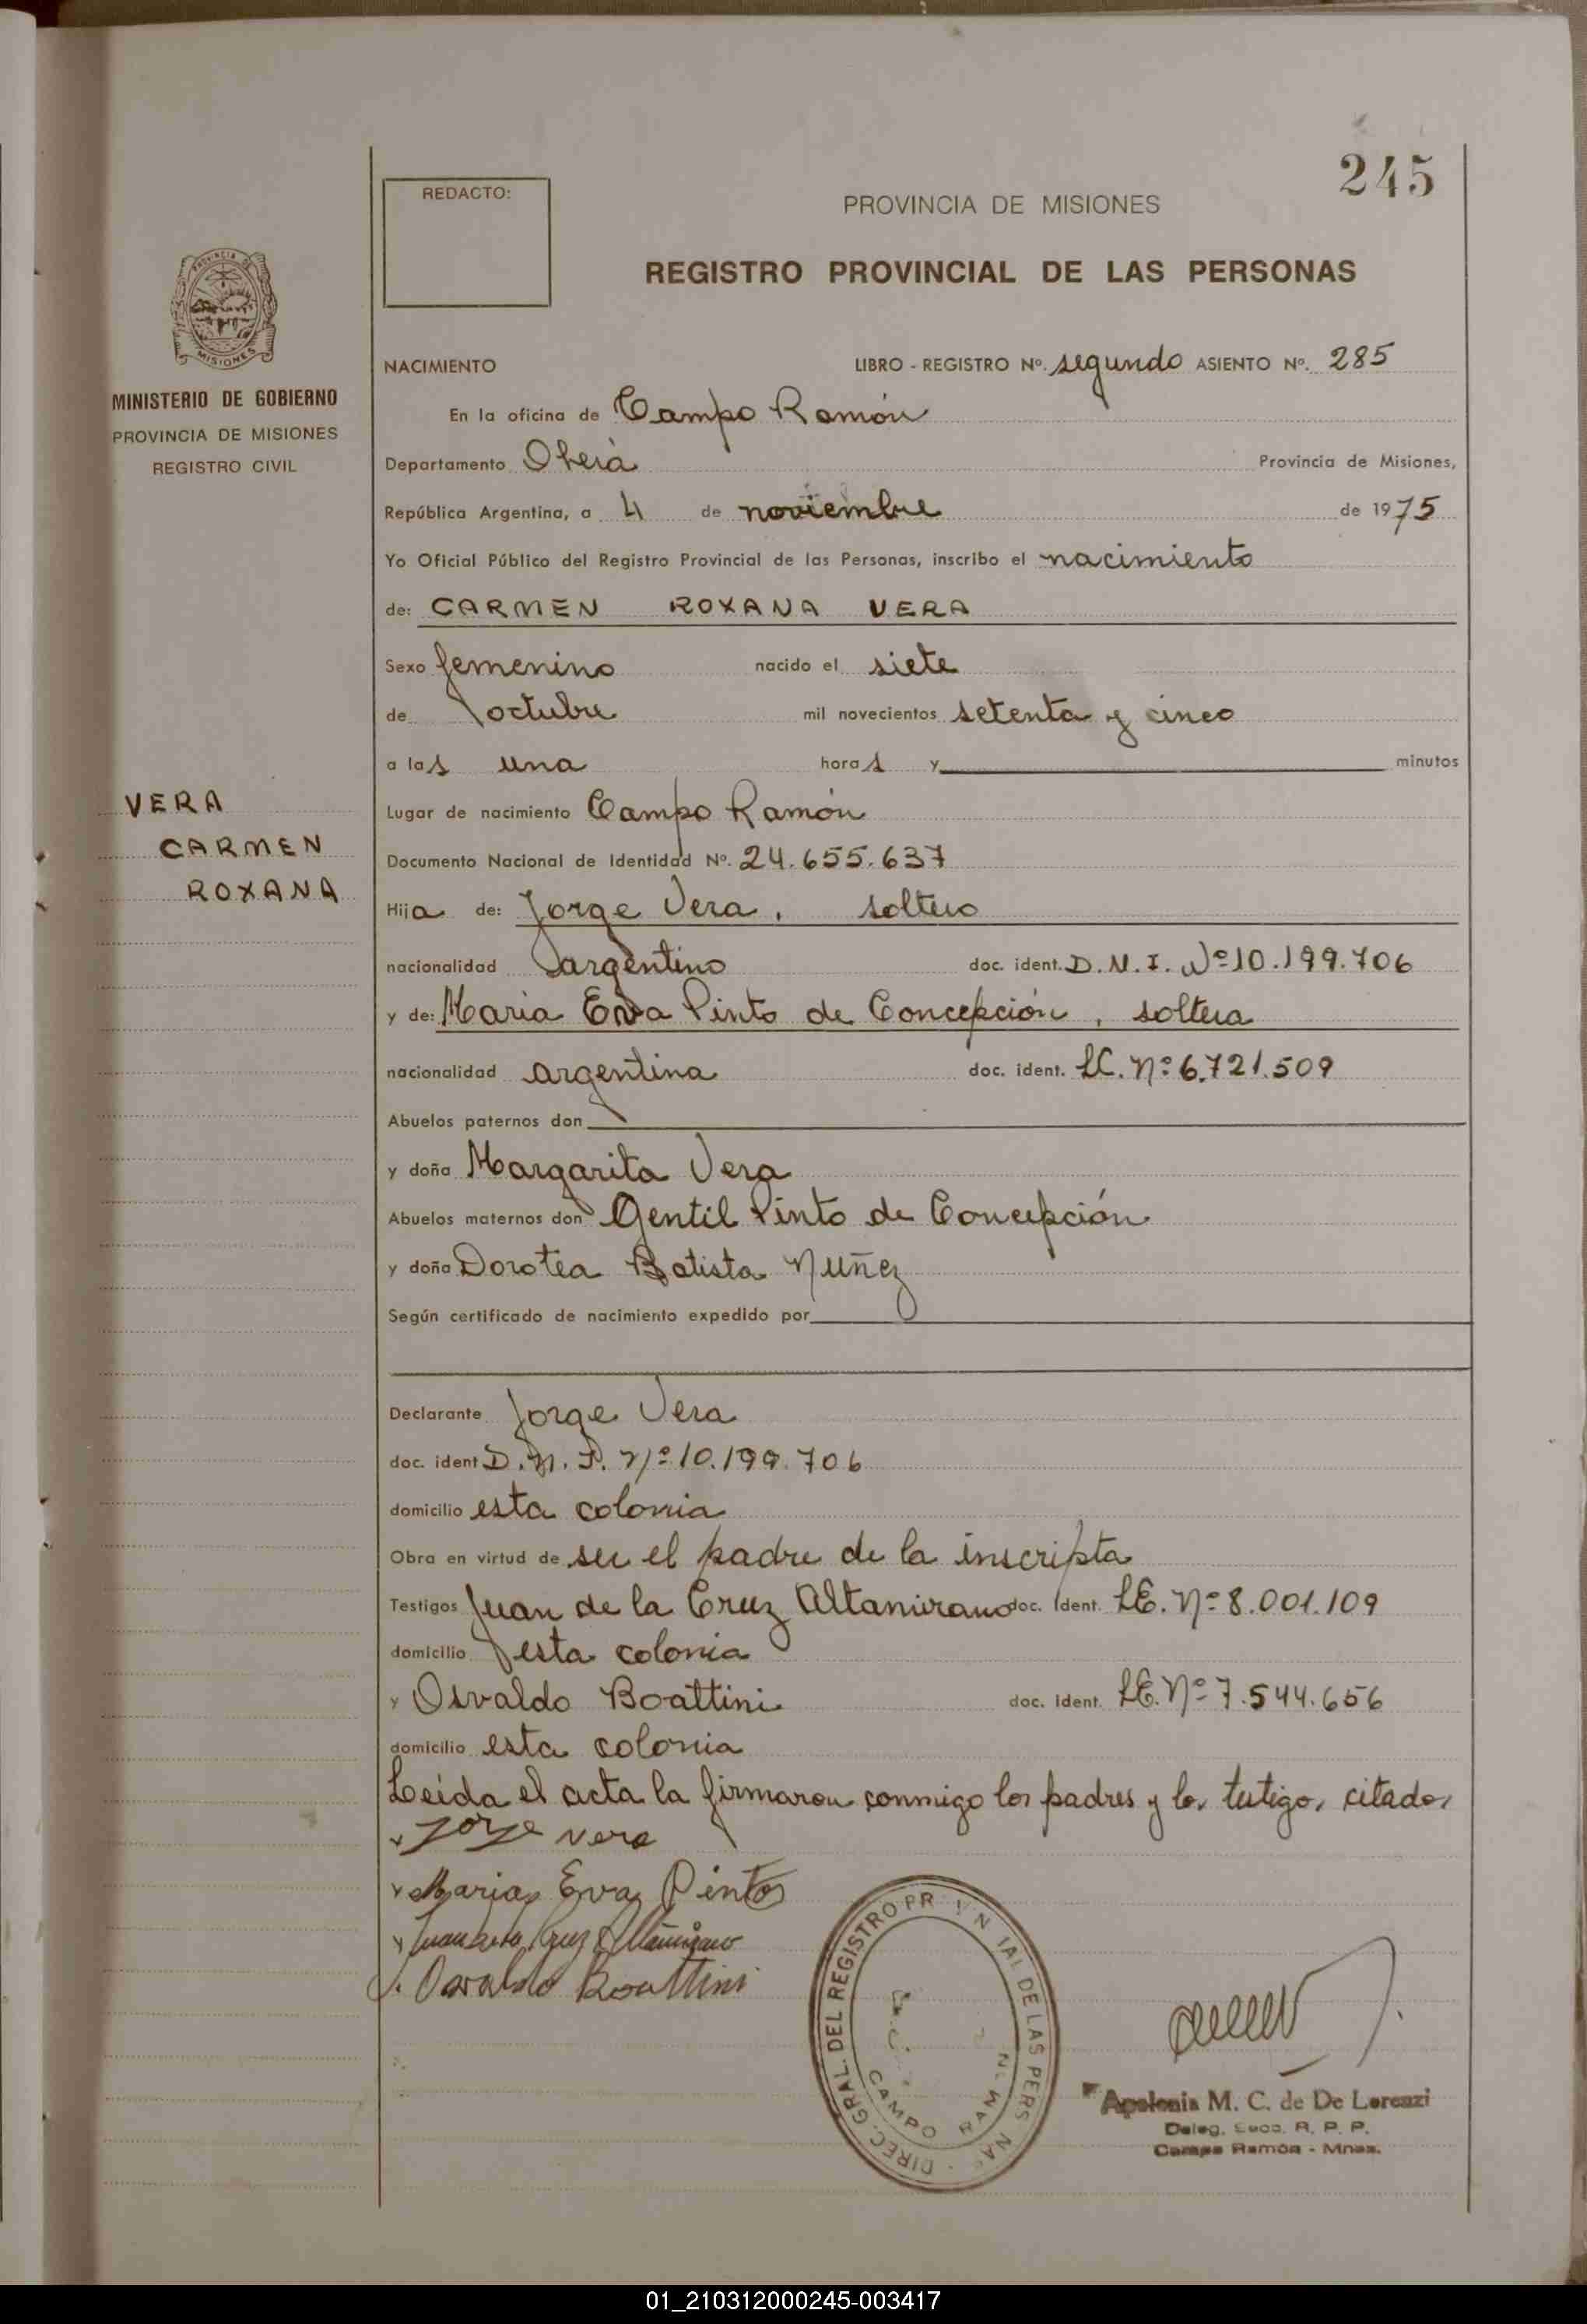 245
REDACTO:
PROVINCIA DE MISIONES
REGISTRO PROVINCIAL DE LAS PERSONAS
PROVINCIA DE
MISIONES
MINISTERIO DE GOBIERNO
PROVINCIA DE MISIONES
REGISTRO CIVIL
NACIMIENTO LIBRO - REGISTRO Nº. segundo ASIENTO Nº. 285
En la oficina de Campo Ramón
Departamento Oberá Provincia de Misiones,
República Argentina, a 4 de noviembre de 1975
Yo Oficial Público del Registro Provincial de las Personas, inscribo el nacimiento
de: CARMEN ROXANA VERA
Sexo femenino nacido el siete
de octubre mil novecientos setenta y cinco
a las una horas y minutos
VERA
CARMEN
ROXANA
Lugar de nacimiento Campo Ramón
Documento Nacional de Identidad Nº. 24.655.637
Hija de: Jorge Vera, soltero
nacionalidad argentino doc. ident. D.N.I. Nº 10.199.706
y de: Maria Eva Pinto de Concepción, soltera
nacionalidad argentina doc. ident. LC. Nº 6.721.509
Abuelos paternos don
y doña Margarita Vera
Abuelos maternos don Gentil Pinto de Concepción
y doña Dorotea Batista Nuñez
Según certificado de nacimiento expedido por
Declarante Jorge Vera
doc. ident D.N.I. Nº 10.199.706
domicilio esta colonia
Obra en virtud de ser el padre de la inscripta
Testigos Juan de la Cruz Altamirano doc. Ident. LE. Nº 8.001.109
domicilio esta colonia
y Osvaldo Boattini doc. Ident. LE. Nº 7.544.656
domicilio esta colonia
Leida el acta la firmaron conmigo los padres y los testigos citados
Jorge Vera
Maria Eva Pinto
Juan de la Cruz Altamirano
Osvaldo Boattini
DIREC. GRAL. DEL REGISTRO PR V N IAL DE LAS PERS NAS
CAMPO RAM N
Apolonia M. C. de De Lorenzi
Deleg. R. P. P.
Campo Ramón - Mnes.
01_210312000245-003417